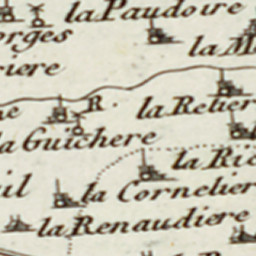 la Paudoire
orges
la M
riere
R.
la Retier
la Guichere
la Ric
il
la Cornelier
la Renaudiere